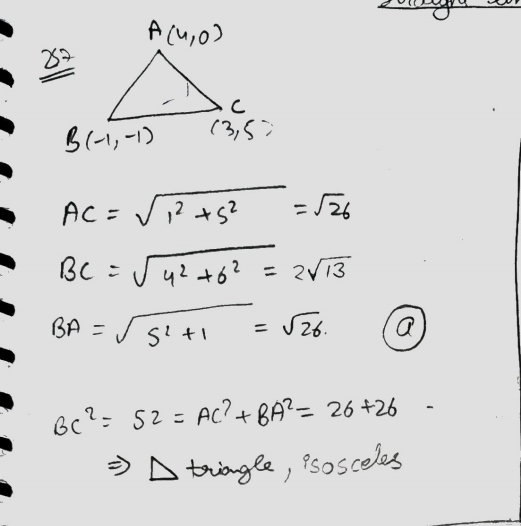 Straight
A(4,0)
B(-1,-1)
C
(3,5)
AC = √1² + 5² = √26
BC = √4² + 6² = 2√13
BA = √5² + 1 = √26. ⓐ
BC² = 52 = AC² + BA² = 26 + 26
⇒ ◺ triangle, isosceles